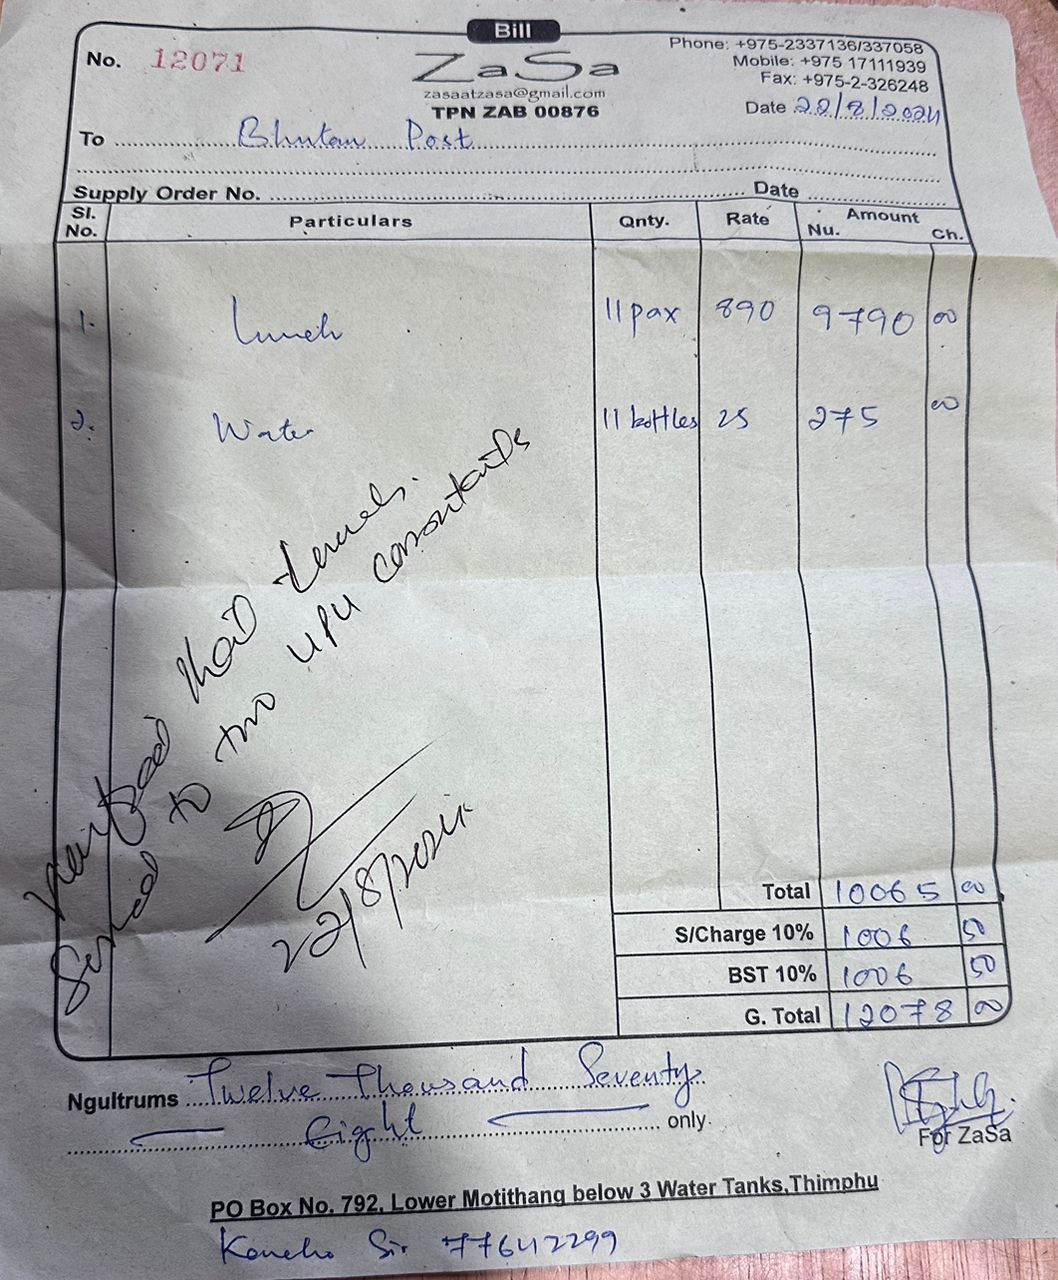 Bill
No. 12071
ZaSa
zasaatzasa@gmail.com
TPN ZAB 00876
Phone: +975-2337136/337058
Mobile: +975 17111939
Fax: +975-2-326248
Date 22/8/2024
To Bhutan Post
Supply Order No. Date
Sl. No. Particulars Qnty. Rate Amount Nu. Ch.
1. Lunch 11 pax 890 9790 00
2. Water 11 bottles 25 275 00
that
Served to two UPU consultants
22/8/2024
Total 10065 00
S/Charge 10% 1006 50
BST 10% 1006 50
G. Total 12078 00
Ngultrums Twelve Thousand Seventy
Eight only
For ZaSa
PO Box No. 792, Lower Motithang below 3 Water Tanks,Thimphu
Koncho Sir 77642299